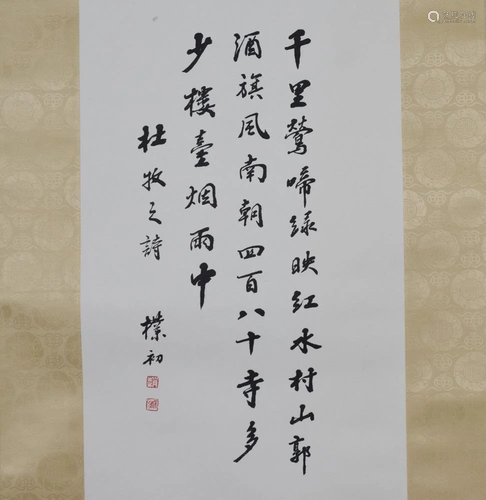 千里鶯啼綠映红水村山郭
酒旗风南朝四百八十寺多
少楼臺烟雨中
杜牧之詩
樸初